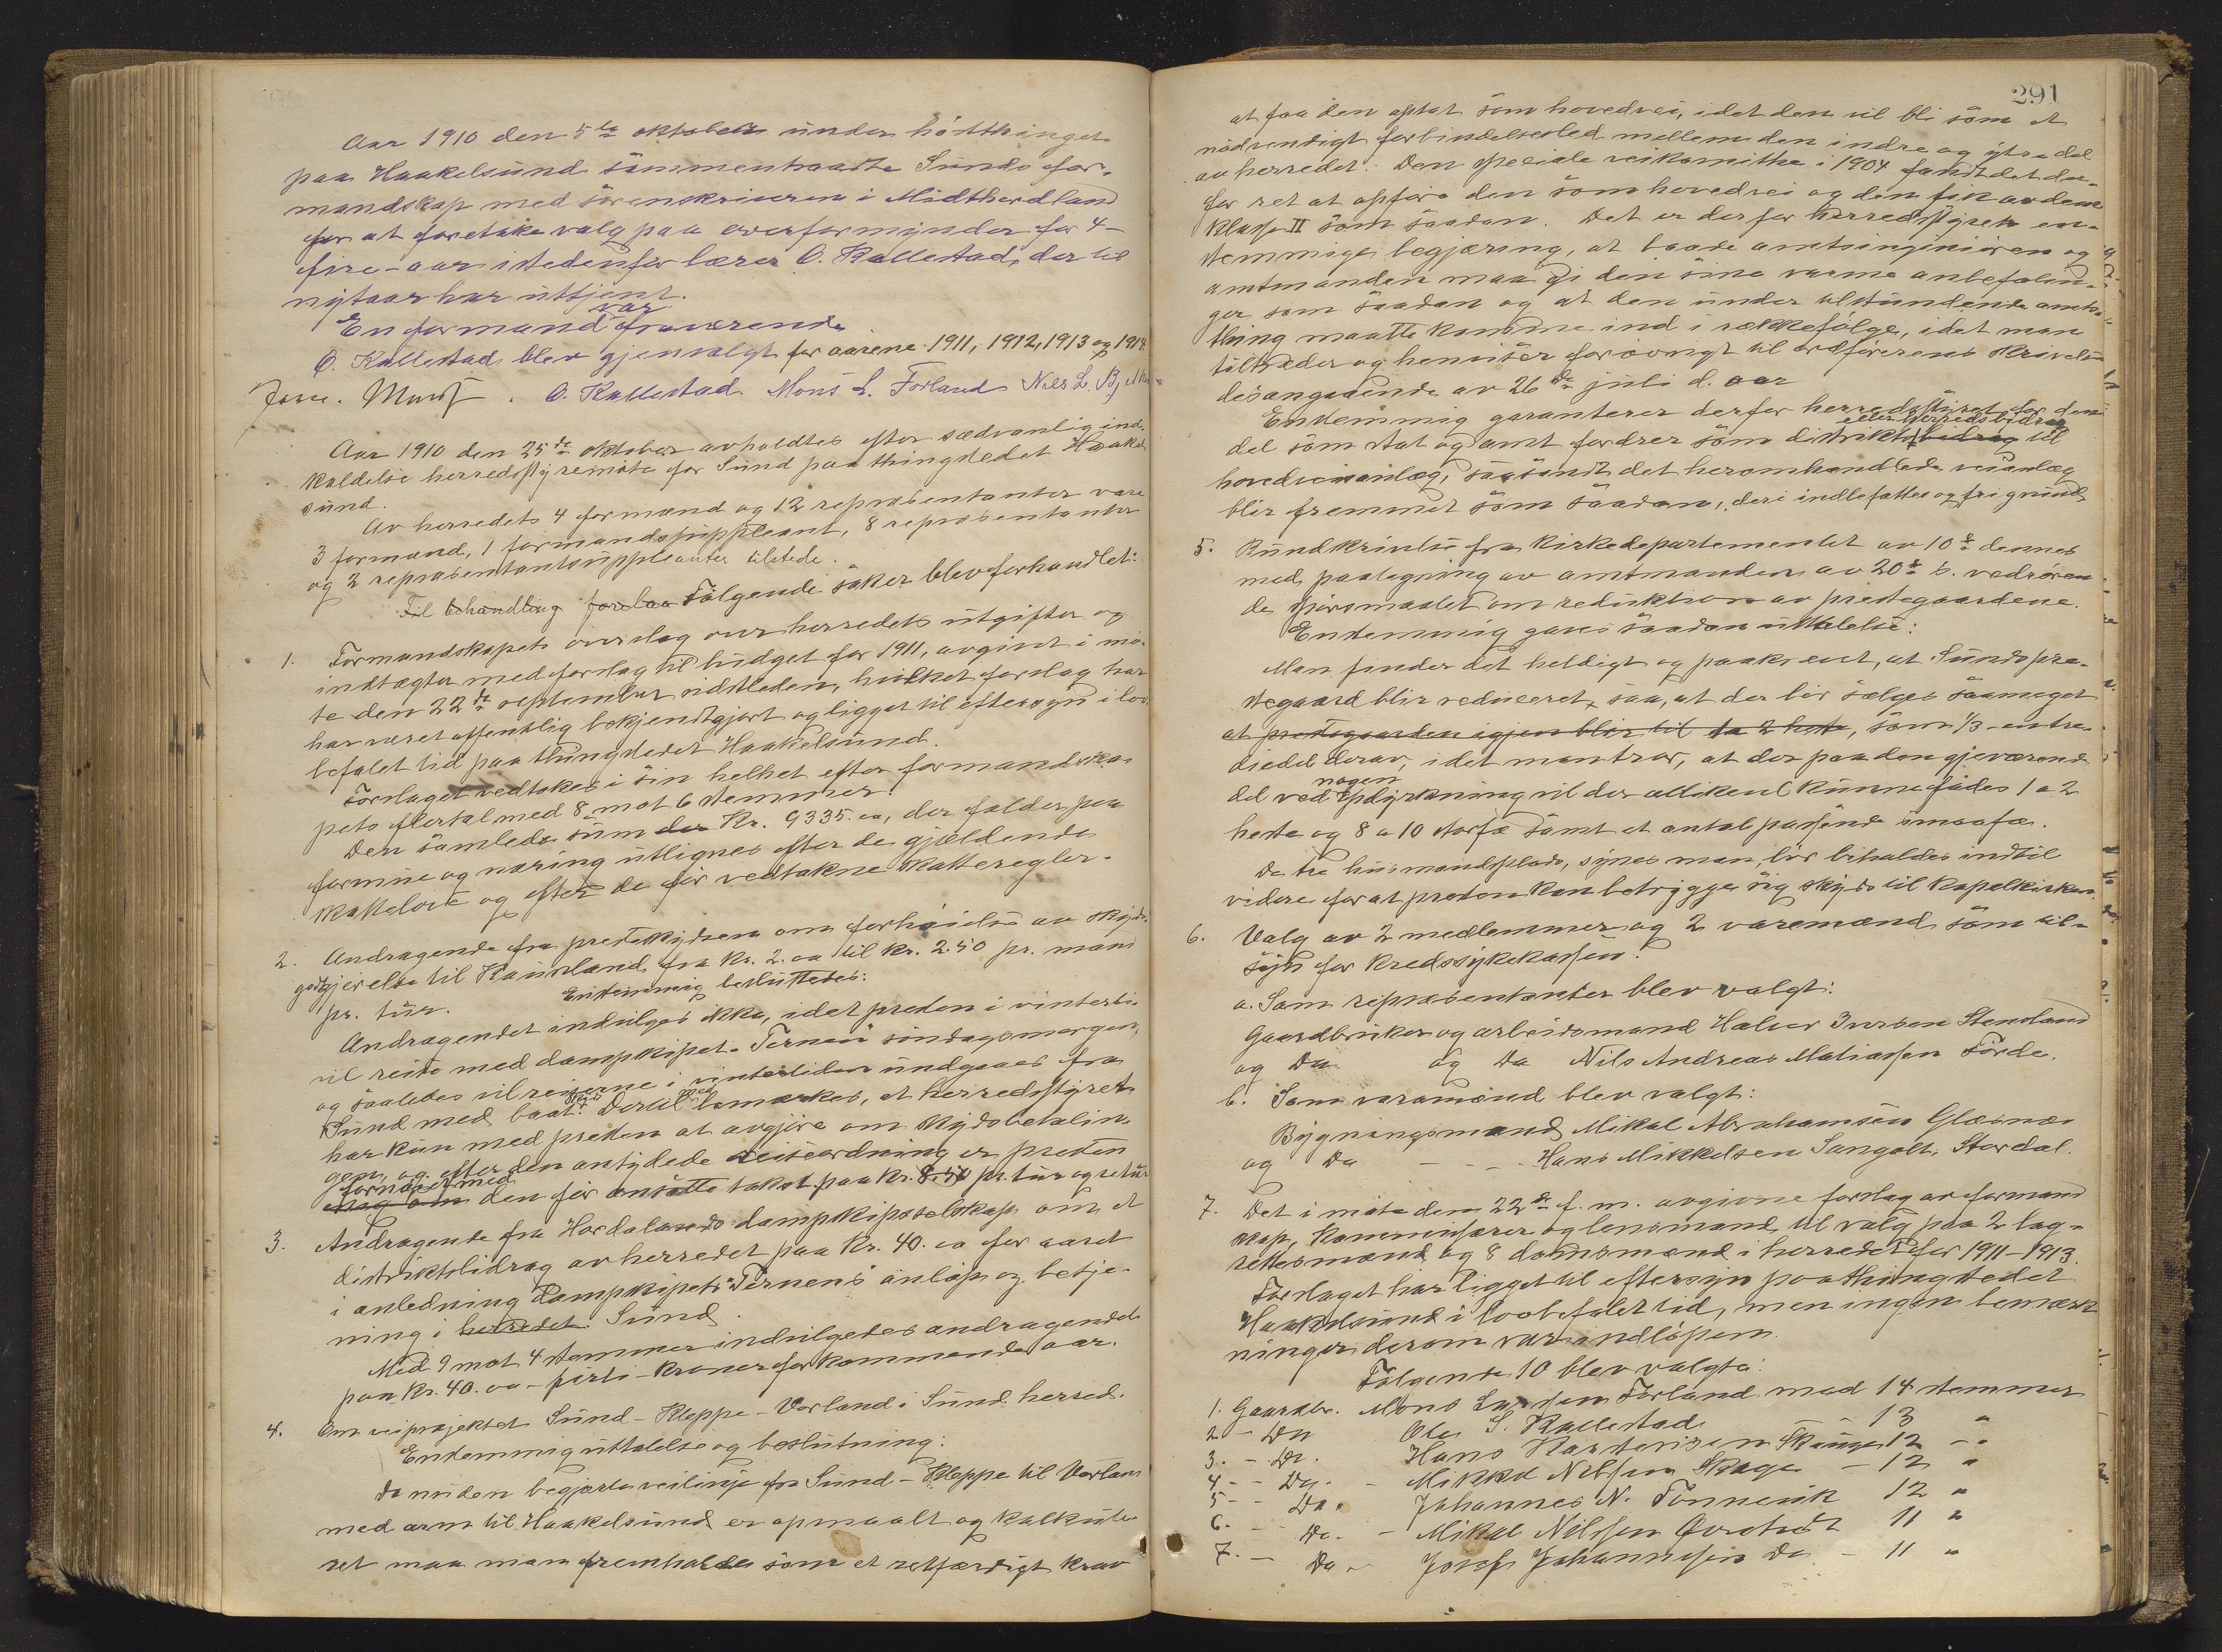 Aar 1910 den 5te oktober under høstthinget
paa Haakelsund sammentraadte Sunds for-
mandskap med sorenskriveren i Midthordland
for at foretake valg paa overformynder for 4-
fire-aar istedenfor lærer O. Kallestad, der til
nytaar har uttjent.
En formand var fraværende.
O. Kallestad blev gjenvalgt for aarene 1911, 1912, 1913 og 1914.
O. Kallestad. Mons L. Førland Nils L.
Aar 1910 den 25de oktober avholdtes efter sædvanlig ind-
kaldelse herredsstyremøte for Sund paa thingstedet Haakel-
sund.
Av herredets 4 formænd og 12 repræsentanter vare
3 formænd, 1 formandssuppleant, 8 repræsentanter
og 2 repræsentantsuppleanter tilstede.
Til behandling forelaa Følgende saker blev forhandlet:
1. Formandskapets overslag over herredets utgifter og
indtægter med forslag til budget for 1911, avgivet i mø-
te den 22de september sidstleden, hvilket forslag har
har været offentlig bekjendtgjort og ligget til eftersyn i lov-
befalet tid paa thingstedet Haakelsund.
Forslaget vedtokes i sin helhet efter formandska-
pets flertal med 8 mot 6 stemmer.
Den samlede sum der Kr. 9335.00, der falder paa
formue og næring utlignes efter de gjældende
skattelove og efter de før vedtakne skatteregler.
2. Andragende fra presteskydsen om forhøielse av skyds-
godtgjørelse til Kausland fra Kr. 2.00 til Kr. 2.50 pr. mand
pr. tur. Enstemmig besluttedes:
Andragendet indvilges ikke, idet presten i vinterti-
vil reise med dampskipet "Ternen" søndagsmorgen,
og saaledes vil reiserne i vintertiden undgaaes fra
Sund med baatskyds. Dertil med bemærkes, at herredsstyret
har kun med presten at avgjøre om skydsbetalin-
gen, og efter den antydede reiseordning er presten
fornøiet med den før ansatte takst paa Kr. 8.50 pr. tur og retur
3. Andragende fra Hordalands dampskipsselskap om et
distriktsbidrag av herredet paa Kr. 40.00 for aaret
i anledning dampskipets "Ternens" anløp og betje-
ning i herredet Sund.
Med 9 mot 4 stemmer indvilgedes andragendet
paa Kr. 40.00 - førti - kroner for kommende aar.
4. Om veiprojektet Sund - Kleppe - Vorland i Sund herred.
Enstemmig uttalelse og beslutning:
Da nu den begjærte veilinje fra Sund - Kleppe til Vorland
med arm til Haakelsund er opmaalt og kalkule-
ret maa man fremholde som et retfærdigt krav
291
at faa den optat som hovedvei, idet den vil bli som et
nødvendigt forbindelsesled mellem den indre og ytre del
av herredet. Den speciale veikomithe i 1904 fandt det der-
for ret at opføre den som hovedvei og den fik av den
klasse II som saadan. Det er derfor herredsstyrets en-
stemmige begjæring, at baade amtsingeniøren og
amtmanden maa gi den sine varme anbefalin-
ger som saadan og at den under tilstundende amts-
thing maatte komme ind i rækkefølge, idet man
tiltræder og henviser forøvrigt til ordførerens skrivelse
desangaaende av 26de juli d. aar
Enstemmig garanterer derfor herredsstyret for den
del som stat og amt fordrer som distrikts bidrag eller herredsbidrag til
hovedveianlæg, saasandt det heromhandlede veianlæg
blir fremmet som saadan, deri indbefattes og fri grund.
5. Rundskrivelse fra Kirkedepartementet av 10de dennes
med paategning av amtmanden av 20de s. vedrøren-
de spørsmaalet om reduktion av prestegaardene.
Enstemmig gaves saadan uttalelse:
Man finder det heldigt og paakrævet, at Sunds pre-
stegaard blir reduceret, saa, at der bør sælges saameget
at prestegaarden igjen blir til 1 a 2 heste, som 1/3 - en tre-
diedel derav, idet man tror, at der paa den gjenværende
del ved nogen opdyrkning vil der allikevel kunne fødes 1 a 2
heste og 8 a 10 storfæ samt et antal passende smaafæ.
De tre husmandsplads, synes man, bør beholdes indtil
videre for at presten kan betrygge sig skyds til kapelkirken.
6. Valg av 2 medlemmer og 2 varemænd som til-
syn for Kredssykekassen.
a. Som repræsentanter blev valgt:
Gaardbruker og arbeidsmand Halvor Iversen Stensland
og Do og Do Nils Andreas Matiassen Førde.
b. Som varamænd blev valgt:
Bygningsmand Mikal Abrahamsen Glesnes
og Do - - - Hans Mikkelsen Sangolt, Stordal.
7. Det i møte den 22de f. m. avgivne forslag av formand-
skap, kommissærer og lensmand til valg paa 2 lag-
rettesmænd og 8 domsmænd i herredet for 1911-1913.
Forslaget har ligget til eftersyn paa thingstedet
Haakelsund i lovbefalet tid, men ingen bemærk-
ninger derom var indløpen.
Følgende 10 blev valgte:
1. Gaardbr. Mons Larssen Førland med 14 stemmer
2 - Do Ole S. Kallestad - 13 "
3. - Do. Hans Karstensen Skauge 12 - "
4 - - Do. - Mikkel Nilssen Skoge - 12 "
5 - - Do. Johannes N. Tønnevik 12 "
6. - - Do. - Mikal Nilssen Øvretvedt 11 "
7. - Do - Josef Johannessen Do - 11 "